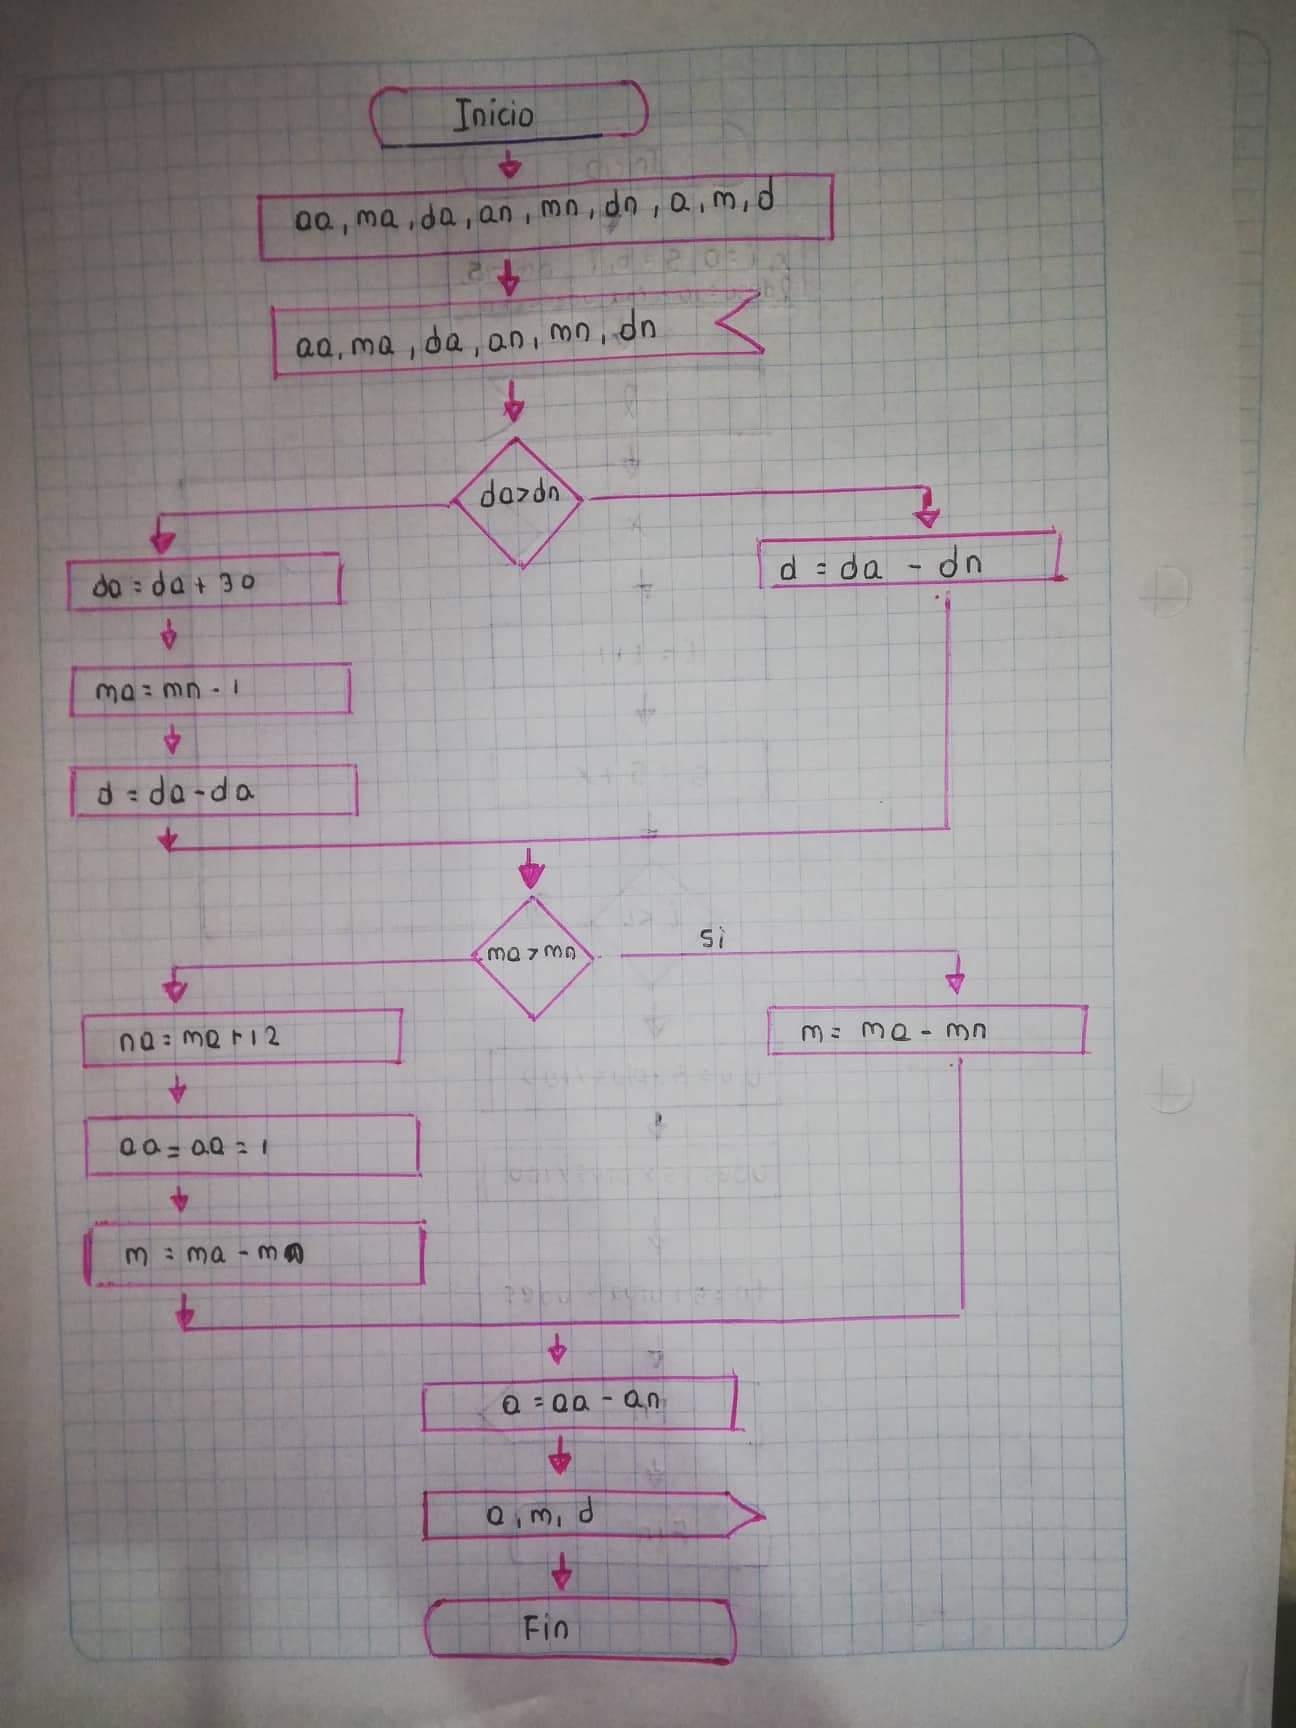 Inicio
aa, ma, da, an, mn, dn, a, m, d
aa, ma, da, an, mn, dn
da>dn
da = da + 30
d = da - dn
ma = mn - 1
d = da - da
ma > mn
si
na = ma + 12
m = ma - mn
aa = aa = 1
m = ma - mn
a = aa - an
a, m, d
Fin